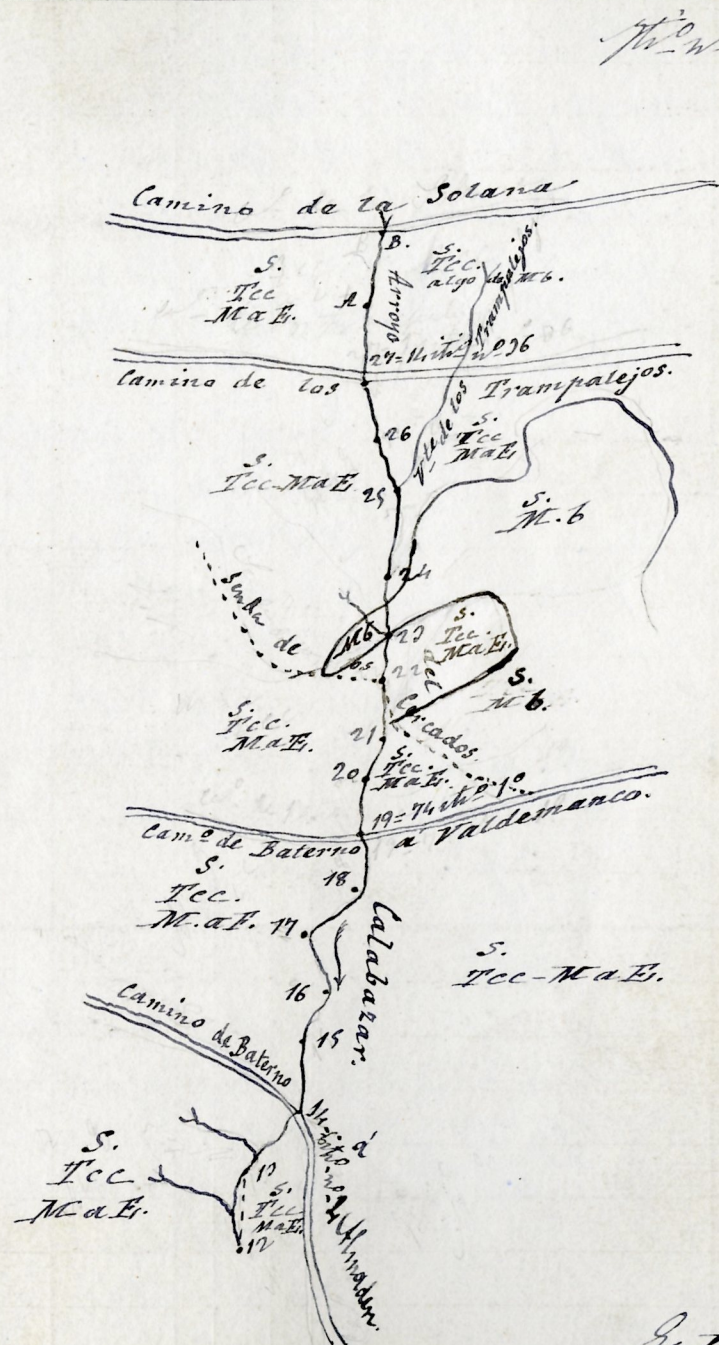 Camino de la Solana
B.
S.
Tcc
MaE.
A
Arroyo
S.
Tcc.
algo de Mb.
27=
nº 36
Camino de los Trampalejos.
26
Vte de los Trampalejos.
S.
Tcc
MaE.
S.
Tcc-MaE.
25
S.
M.b
24
Senda de los Cercados
del
Mb
23
S.
Tcc.
MaE.
22
S.
Mb.
S.
Tcc.
MaE.
21
20
S.
Tcc.
MaE.
19=74
Camº de Baterno á Valdemanco.
18
S.
Tcc.
M.aE.
17
Calabazar.
S.
Tcc-MaE.
16
15
Camino de Baterno á Almaden.
14
S.
Tcc
MaE.
13
S.
Tcc
MaE.
12